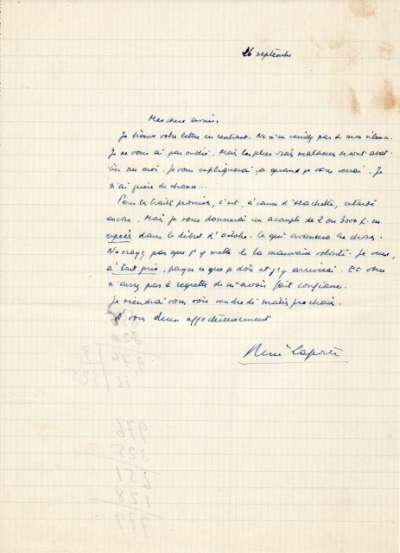 26 septembre
Mes chers amis,
Je trouve votre lettre en rentrant. Ne m'en veuillez pas de mon silence.
Je ne vous ai pas oublié. Mais les plus vrais malheurs se sont abat-
tus sur moi. Je vous expliquerai ça quand je vous verrai. Je
n'ai guère de chance...
Pour la traite premier, c'est, à cause d'Hachette, retardé
encore. Mais je vous donnerai un acompte de 2 ou 3000 f. en
espèces dans le début d'octobre. Ce qui avancera les choses.
Ne croyez pas que j'y mette de la mauvaise volonté. Je veux,
à tout prix, payer ce que je dois et j'y arriverai. Et vous
n'aurez pas à regretter de m'avoir fait confiance.
Je viendrai vous voir vendredi matin prochain.
A vous deux affectueusement
René Laporte